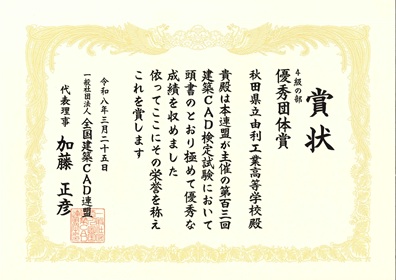 賞状
4級の部
優秀団体賞
秋田県立由利工業高等学校殿
貴殿は本連盟が主催の第百三回
建築CAD検定試験において
頭書のとおり極めて優秀な
成績を収めました
依ってここにその栄誉を称え
これを賞します
令和八年三月二十五日
一般社団法人 全国建築CAD連盟
代表理事 加藤 正彦